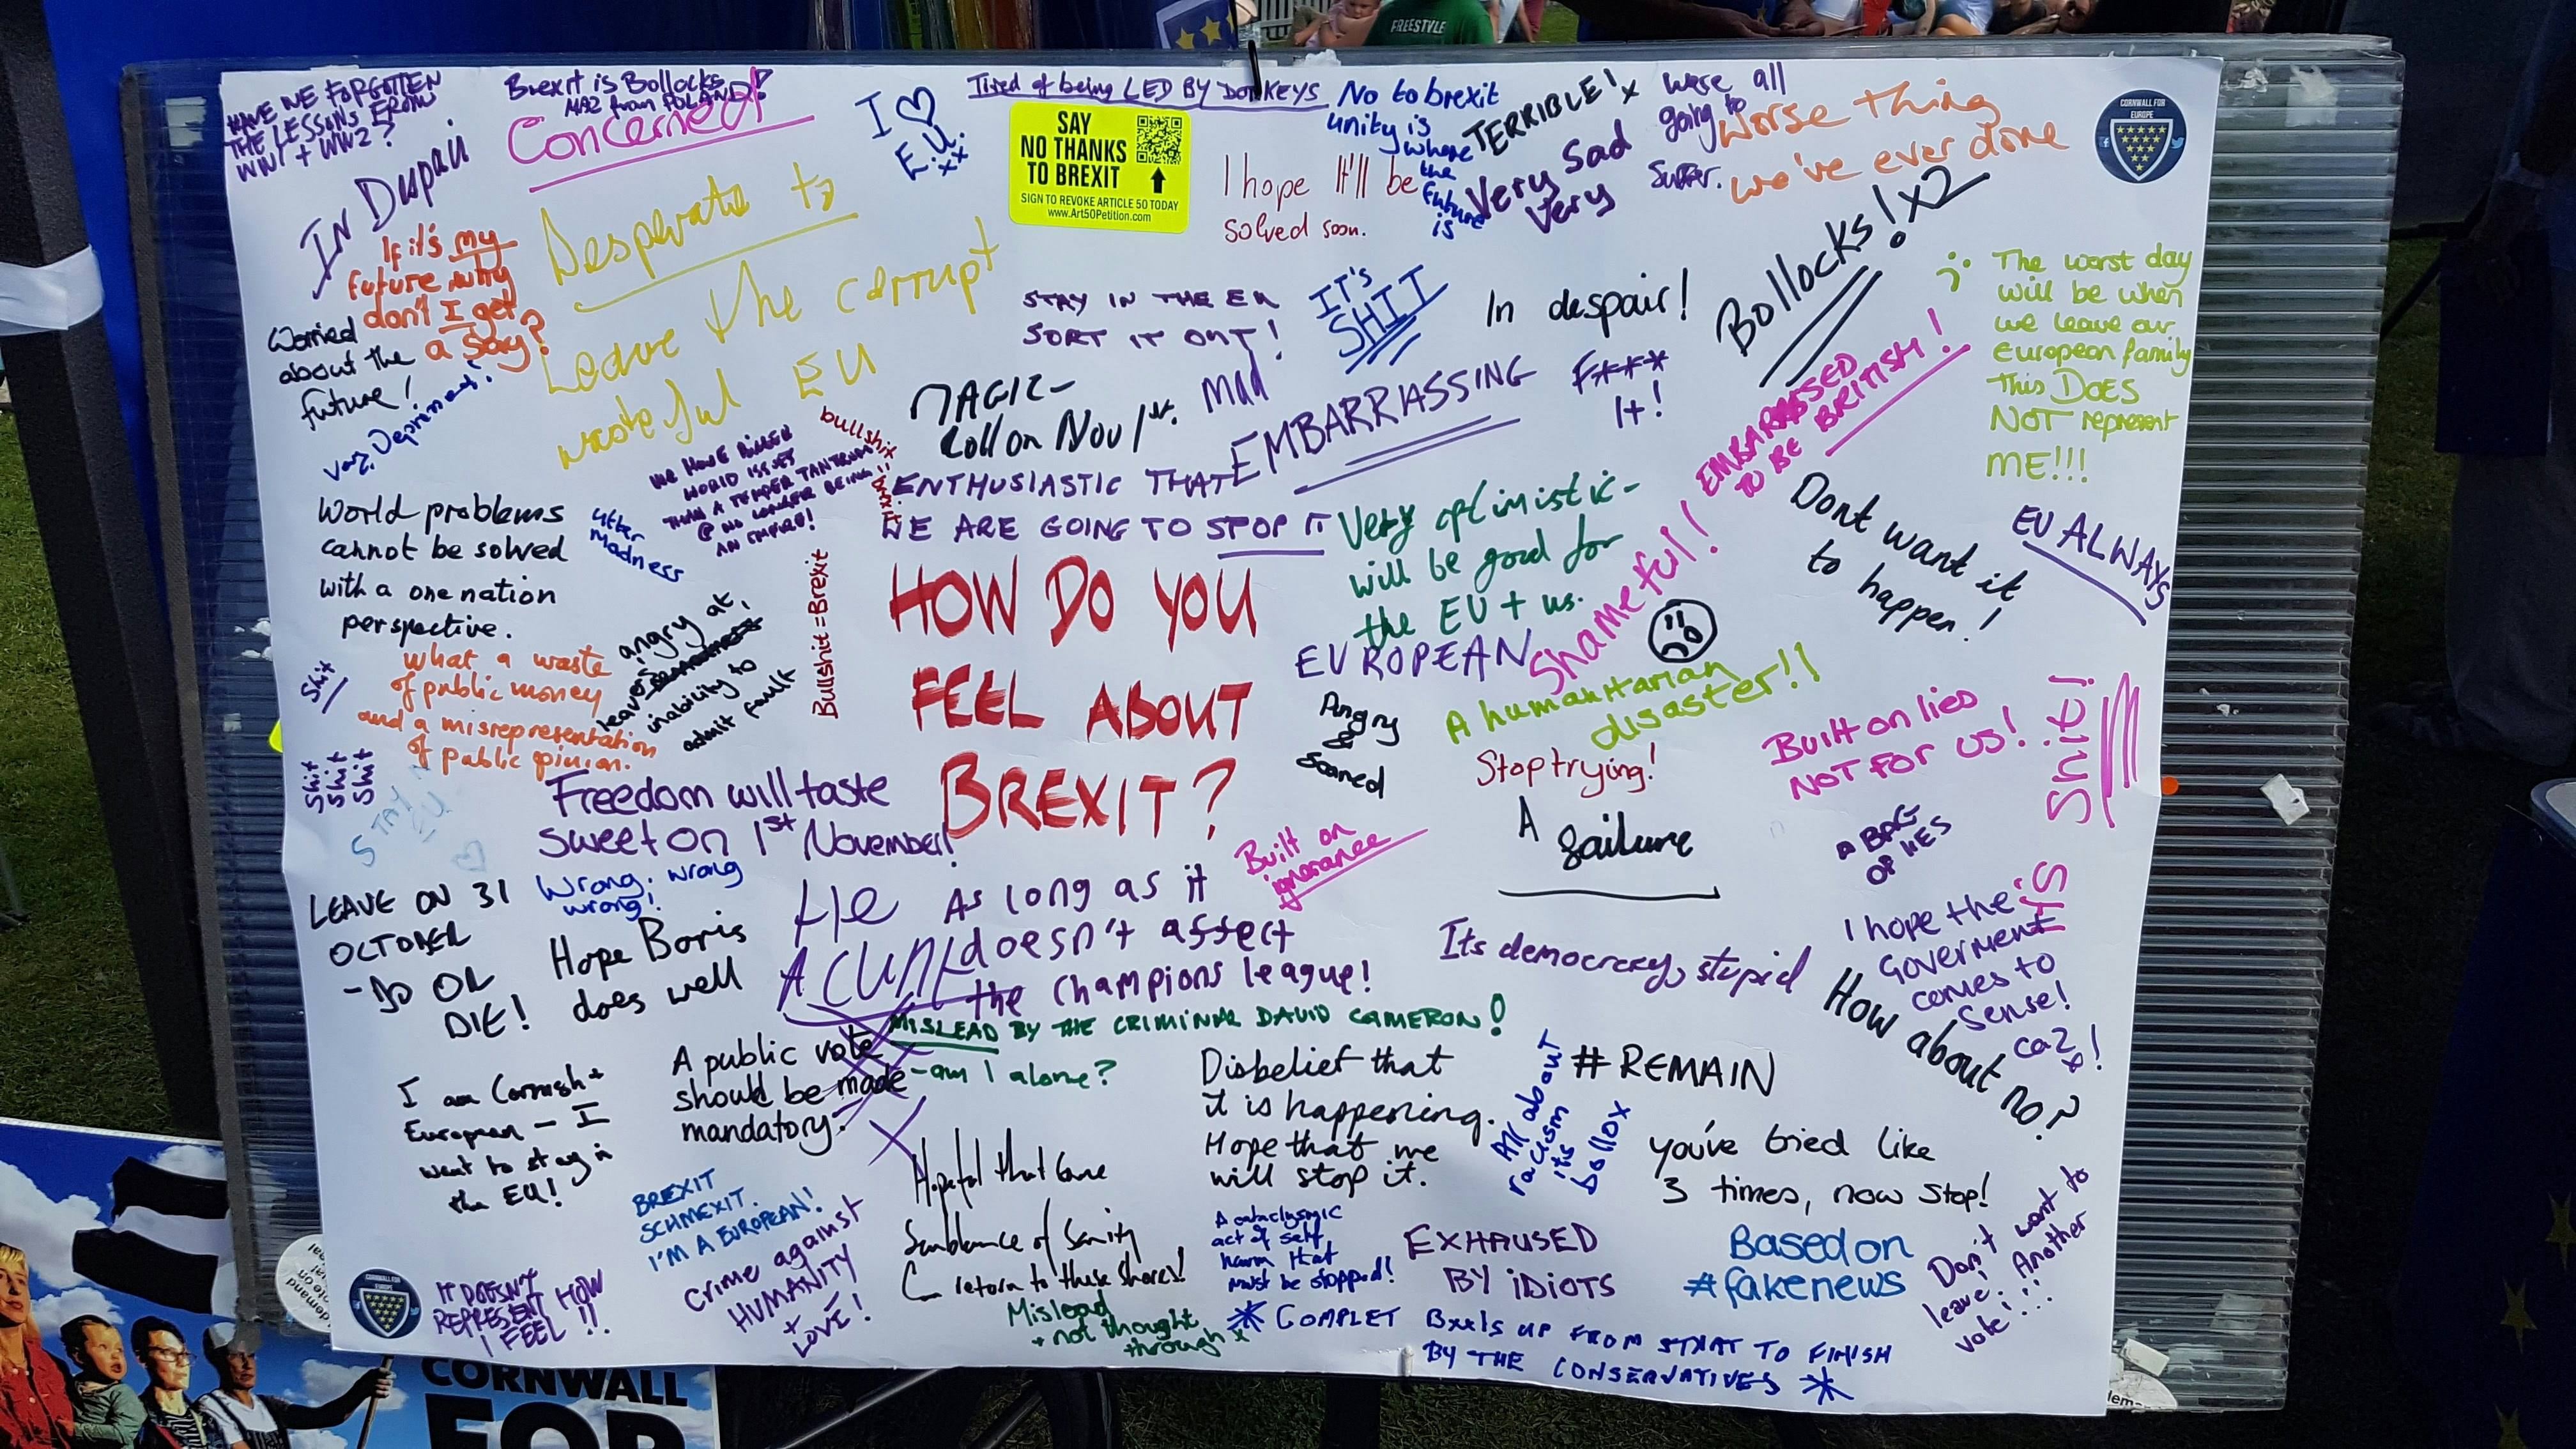 FREESTYLE
HAVE WE FORGOTTEN
THE LESSONS FROM
WW1 + WW2?
Brexit is Bollocks!
MAZ from POLAND
Concerned!
I ♡
E.U.
xx
Tired of being LED BY DONKEYS
SAY
NO THANKS
TO BREXIT
SIGN TO REVOKE ARTICLE 50 TODAY
www.Art50Petition.com
No to brexit
unity is
where
the
future
is
TERRIBLE! x
Very Sad
Very
we're all
going to
Suffer.
Worse thing
we've ever done
CORNWALL FOR
EUROPE
IN Despair
If it's my
future why
don't I get
a say?
Desperate to
Leave the corrupt
wasteful EU
I hope It'll be
solved soon.
Bollocks! x2
Worried
about the
future!
Very Depressed!
STAY IN THE EU
SORT IT OUT!
IT'S
SHIT
In despair!
The worst day
will be when
we leave our
european family
this DOES
NOT represent
ME!!!
MAGIC -
Roll on Nov 1st.
Mad
EMBARRASSING
F***
It!
EMBARRASSED
TO BE BRITISH!
bullshit = Brexit
WE HAVE BIGGER
WORLD ISSUES
THAN A TEMPER TANTRUM
@ NO LONGER BEING
AN EMPIRE!
ENTHUSIASTIC THAT
WE ARE GOING TO STOP IT
Very optimistic -
will be good for
the EU + us.
Shameful!
Dont want it
to happen!
EU ALWAYS
World problems
cannot be solved
with a one nation
perspective.
utter
madness
angry at
leavers
inability to
admit fault
Bullshit = Brexit
HOW DO YOU
FEEL ABOUT
BREXIT?
EUROPEAN
A humanitarian
disaster!!
Shit
what a waste
of public money
and a misrepresentation
of public opinion.
Angry
&
Scared
Stop trying!
Built on lies
NOT FOR US!
Shit!
Shit
Shit
Shit
STAY
EU!
♡
Freedom will taste
sweet on 1st November!
Built on
ignorance
A
failure
A BAG
OF LIES
LEAVE ON 31
OCTOBER
- DO OR
DIE!
Wrong. wrong
wrong!
Hope Boris
does well
He
A CUNT
As long as it
doesn't affect
the Champions league!
Its democracy, stupid
I hope the
Goverment
comes to
Sense!
MISLEAD BY THE CRIMINAL DAVID CAMERON!
- am I alone?
How about no?
I am Cornish +
European - I
want to stay in
the EU!
A public vote
should be made
mandatory.
Disbelief that
it is happening.
Hope that we
will stop it.
All about
racism
its
Bollox
# REMAIN
you've tried like
3 times, now stop!
BREXIT
SCHMEXIT.
I'M A EUROPEAN!
Hopeful that some
Semblance of Sanity
return to these shores!
A cataclysmic
act of self
harm that
must be stopped!
EXHAUSED
BY IDIOTS
Based on
#fakenews
Don't want to
leave! Another
vote!!!
CORNWALL FOR
EUROPE
IT DOESN'T
REPRESENT HOW
I FEEL!!
Crime against
HUMANITY
+
LOVE!
Mislead
+ not thought
through x
COMPLET Balls UP FROM START TO FINISH
BY THE CONSERVATIVES
CORNWALL
FOR